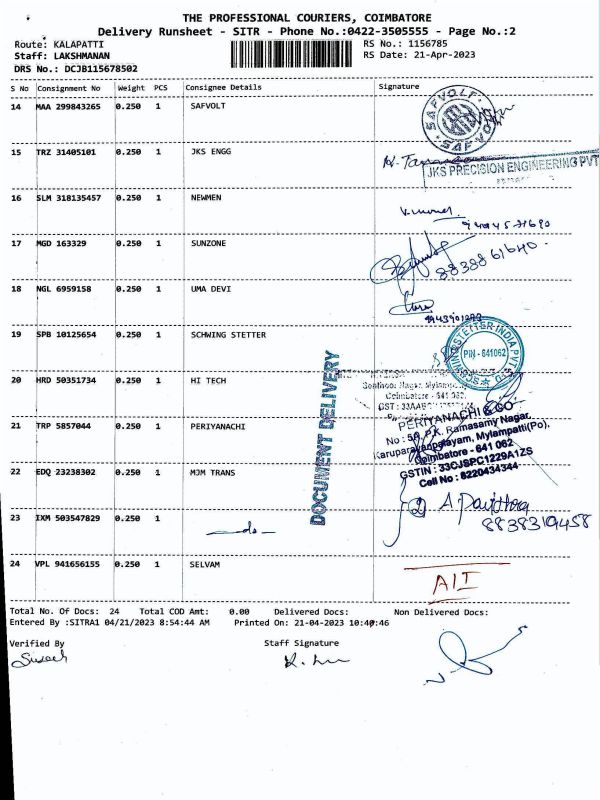 THE PROFESSIONAL COURIERS, COIMBATORE
Delivery Runsheet - SITR - Phone No.:0422-3505555 - Page No.:2
Route: KALAPATTI
RS No.: 1156785
Staff: LAKSHMANAN
RS Date: 21-Apr-2023
DRS No.: DCJB115678502
S No Consignment No Weight PCS Consignee Details Signature
14 MAA 299843265 0.250 1 SAFVOLT
SAFVOLT
SAFVOLT
15 TRZ 31405101 0.250 1 JKS ENGG
JKS PRECISION ENGINEERING PVT
16 SLM 318135457 0.250 1 NEWMEN
17 MGD 163329 0.250 1 SUNZONE
8838861640
18 NGL 6959158 0.250 1 UMA DEVI
19 SPB 10125654 0.250 1 SCHWING STETTER
PIN - 641062
20 HRD 50351734 0.250 1 HI TECH
DOCUMENT DELIVERY
Coimbatore - 641 062.
21 TRP 5857044 0.250 1 PERIYANACHI
PERIYANACHI & CO
No : 5A, P.K. Ramasamy Nagar,
Karuparayanpalayam, Mylampatti(Po),
Coimbatore - 641 062
GSTIN : 33CJSPC1229A1ZS
Cell No : 6220434344
22 EDQ 23238302 0.250 1 MJM TRANS
2) A
8838319458
23 IXM 503547829 0.250 1
do
24 VPL 941656155 0.250 1 SELVAM
AIT
Total No. Of Docs: 24 Total COD Amt: 0.00 Delivered Docs: Non Delivered Docs:
Entered By :SITRA1 04/21/2023 8:54:44 AM Printed On: 21-04-2023 10:40:46
Verified By Staff Signature